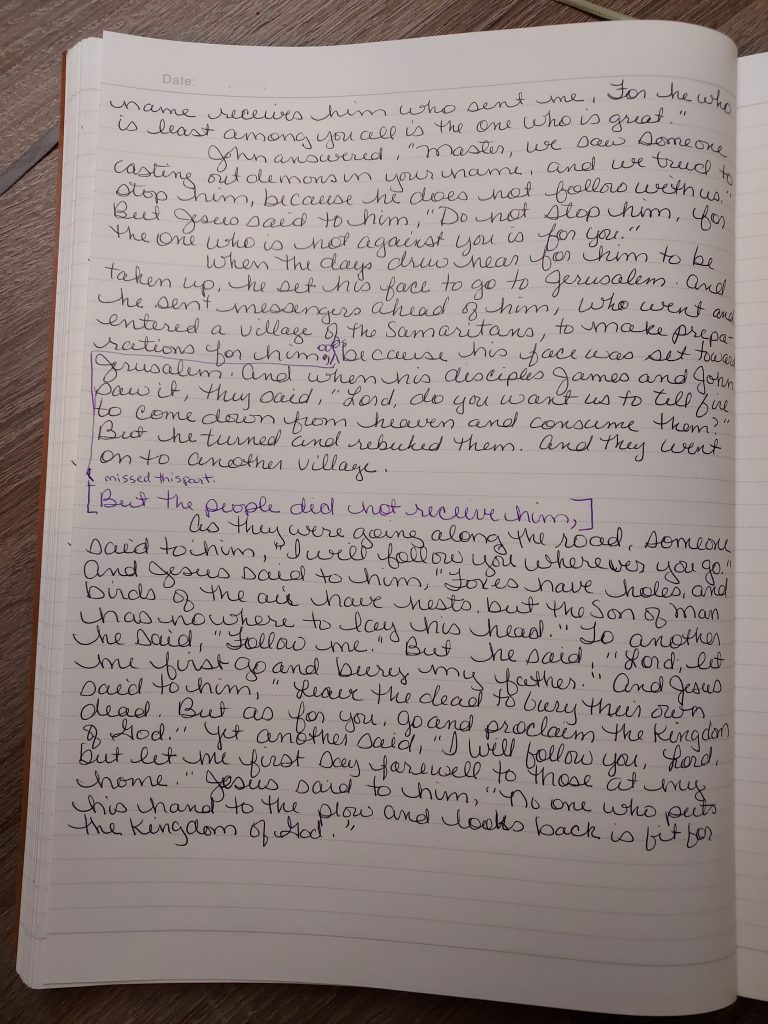 Date:
name receives him who sent me. For he who
is least among you all is the one who is great."
John answered, "Master, we saw someone
casting out demons in your name, and we tried to
stop him, because he does not follow with us."
But Jesus said to him, "Do not stop him, for
the one who is not against you is for you."
When the days drew near for him to be
taken up, he set his face to go to Jerusalem. And
he sent messengers ahead of him, who went and
entered a village of the Samaritans, to make prepa-
rations for him, because his face was set toward
Jerusalem. And when his disciples James and John
saw it, they said, "Lord, do you want us to tell fire
to come down from heaven and consume them?"
But he turned and rebuked them. And they went
on to another village.
missed this part.
[But the people did not receive him,]
As they were going along the road, someone
said to him, "I will follow you wherever you go."
And Jesus said to him, "Foxes have holes, and
birds of the air have nests, but the Son of Man
has nowhere to lay his head." To another
he said, "Follow me." But he said, "Lord, let
me first go and bury my father." And Jesus
said to him, "Leave the dead to bury their own
dead. But as for you, go and proclaim the Kingdom
of God." Yet another said, "I will follow you, Lord,
but let me first say farewell to those at my
home." Jesus said to him, "No one who puts
his hand to the plow and looks back is fit for
the Kingdom of God."